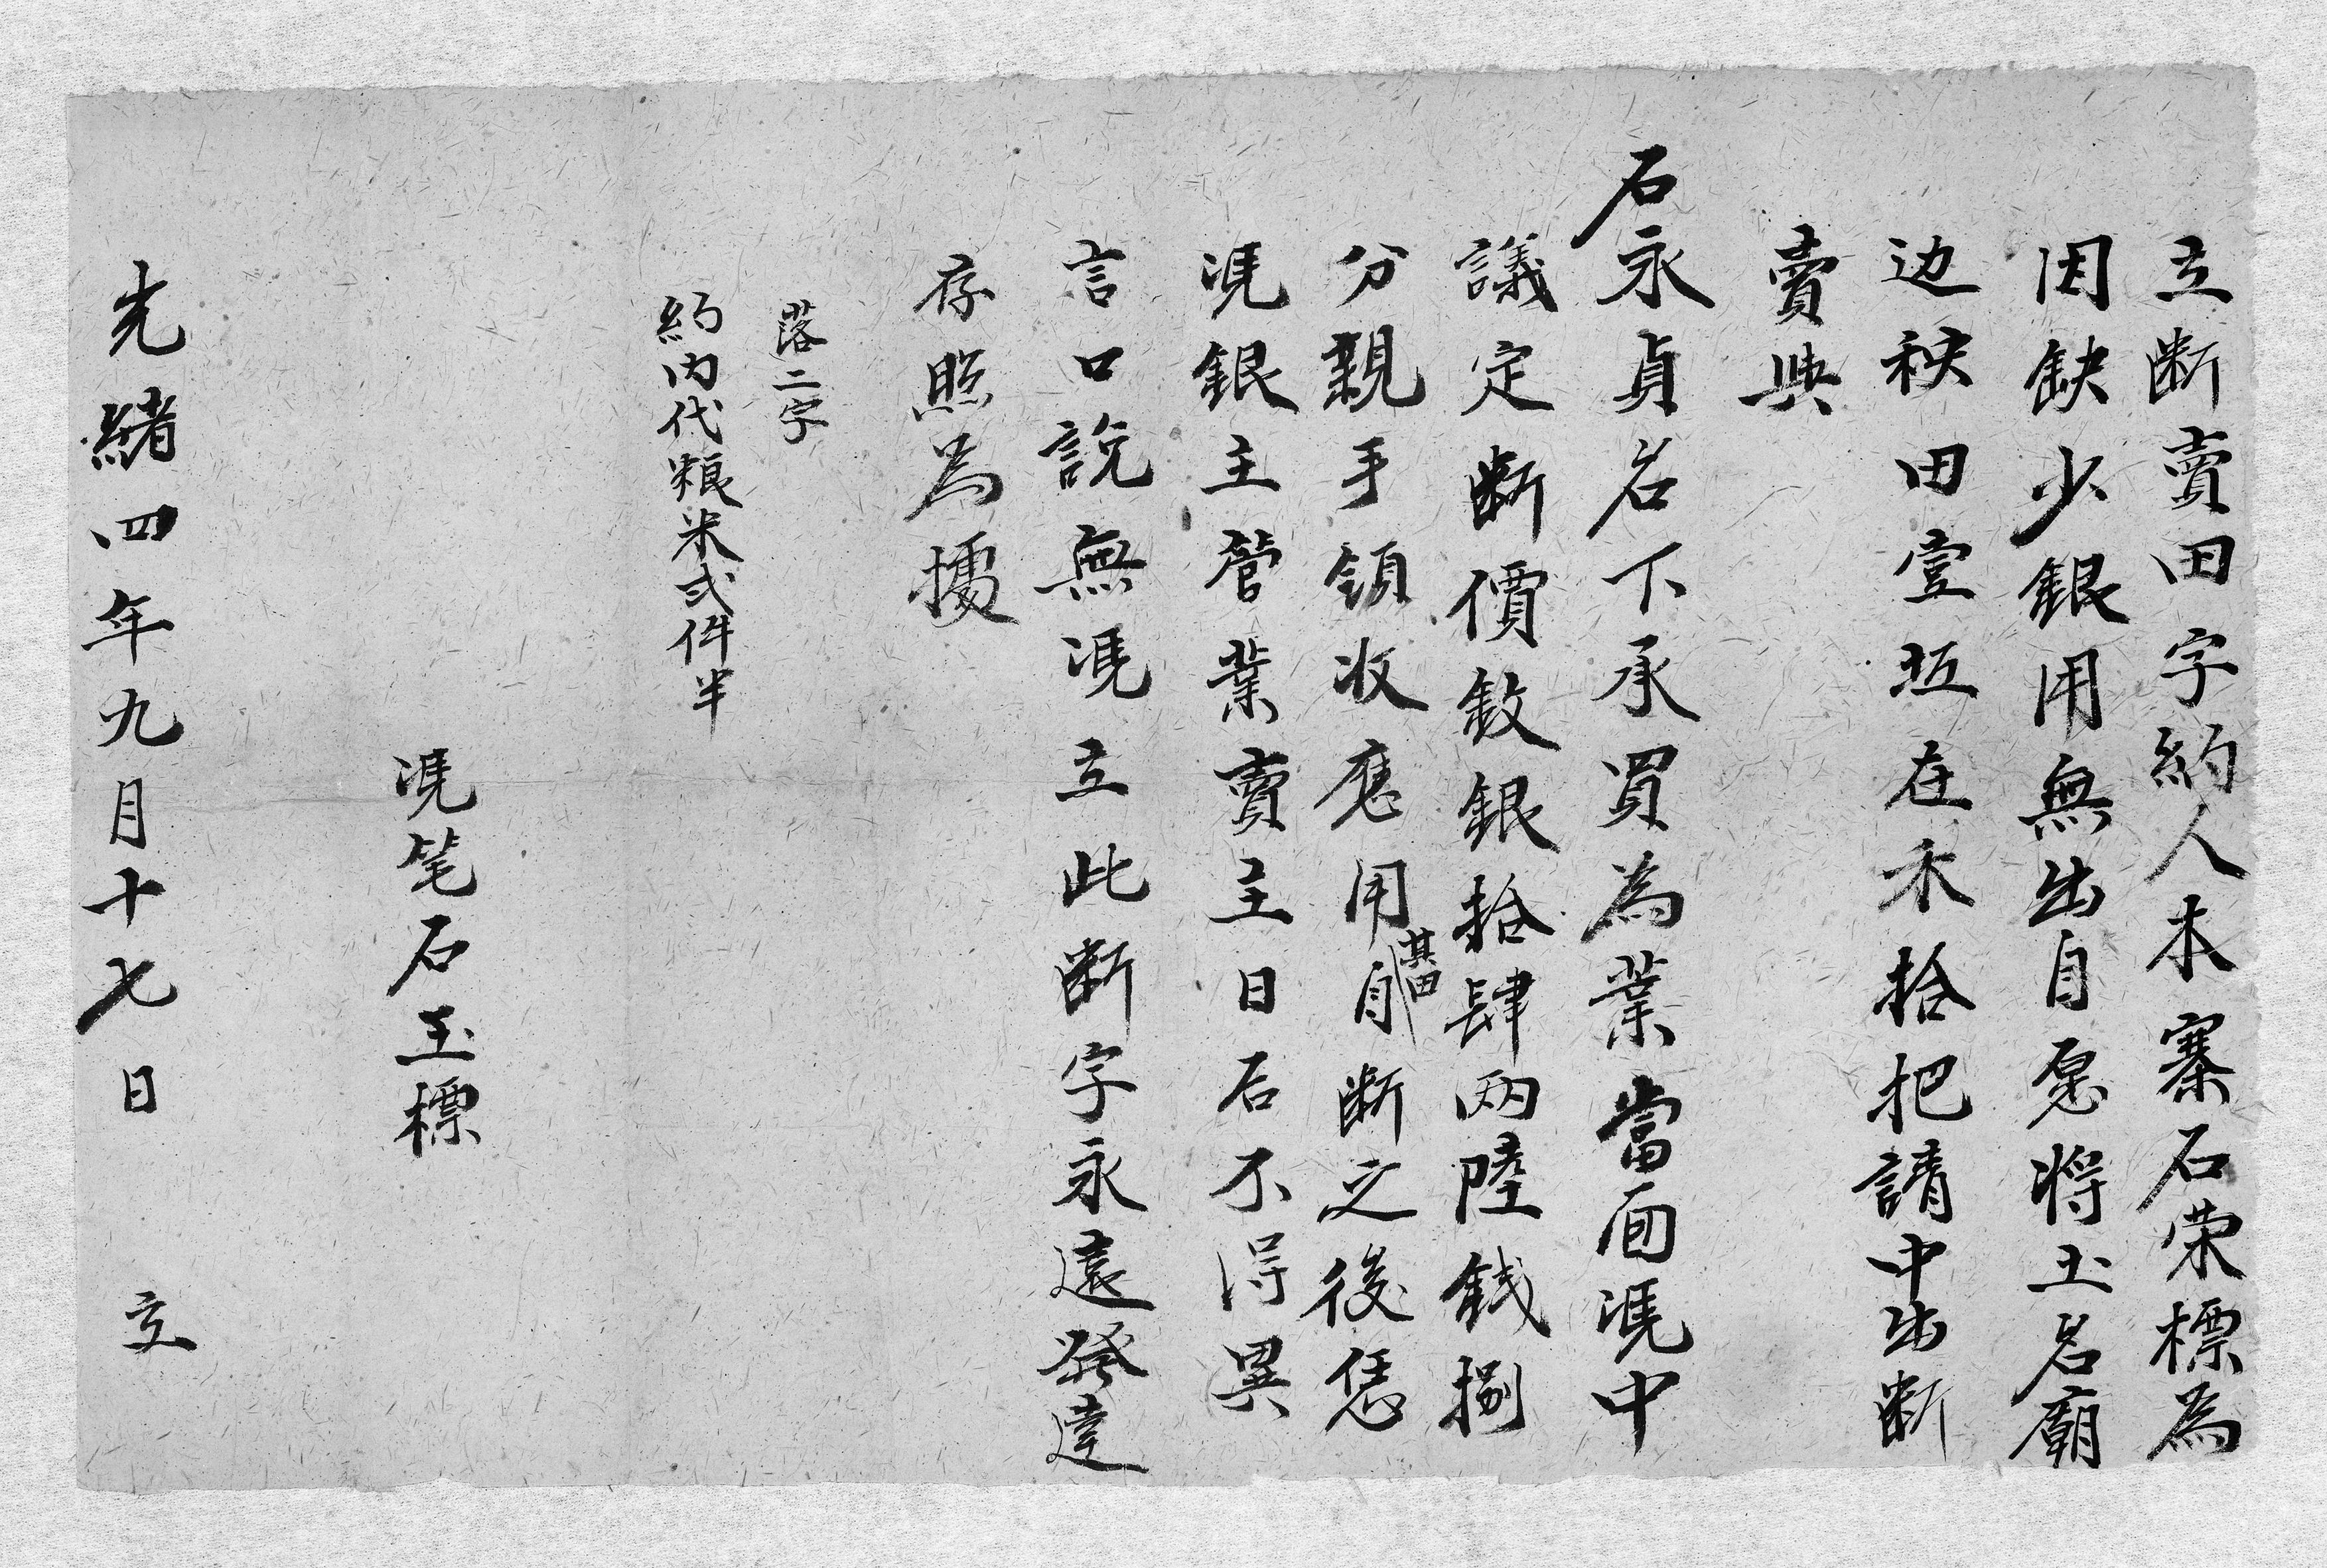 立断賣田字約人本寨石荣標為
因缺少銀用無出自愿将土名廟
边秧田壹坵在禾拾把請中出断
賣與
石永貞名下承買為業當面凴中
議定断價敘銀拾肆两陸銭捌
分親手領收應用其田自断之後恁
凴銀主管業賣主日后不得異
言口説無凴立此断字永遠發達
存照為據
落二字
約内代粮米弍件半
凴笔石玉標
光緒四年九月十七日 立